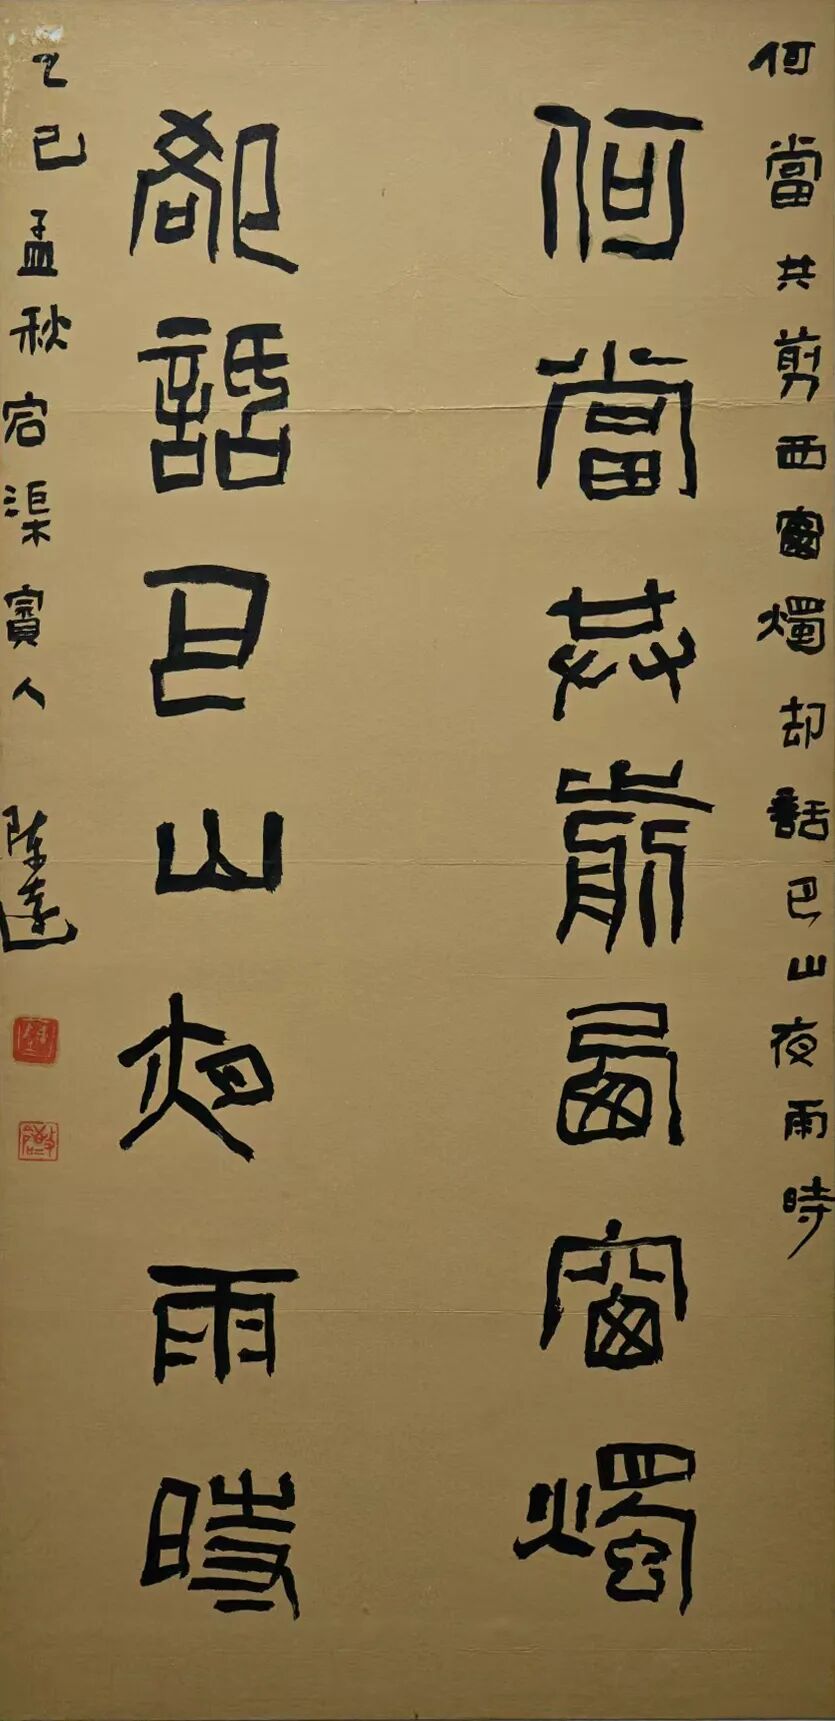 何當共剪西窗燭却話巴山夜雨時
何當共剪西窗燭
卻話巴山夜雨時
乙巳孟秋宕渠賨人 陈遠